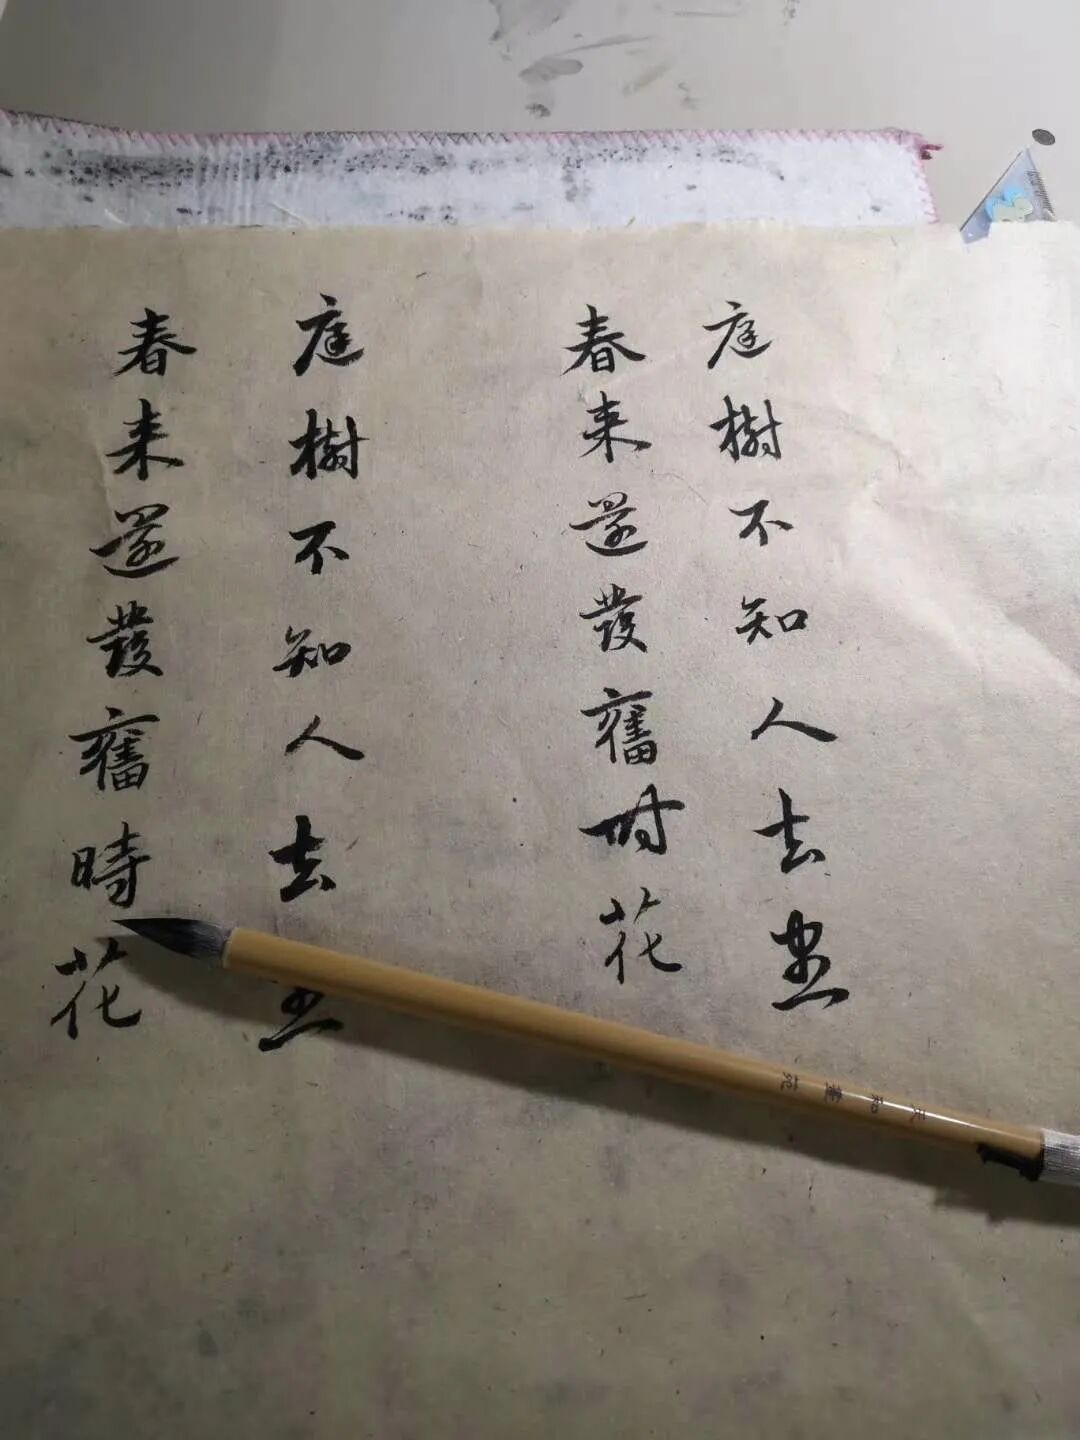 庭樹不知人去盡
春來還發舊時花
庭樹不知人去
春來還發舊時花